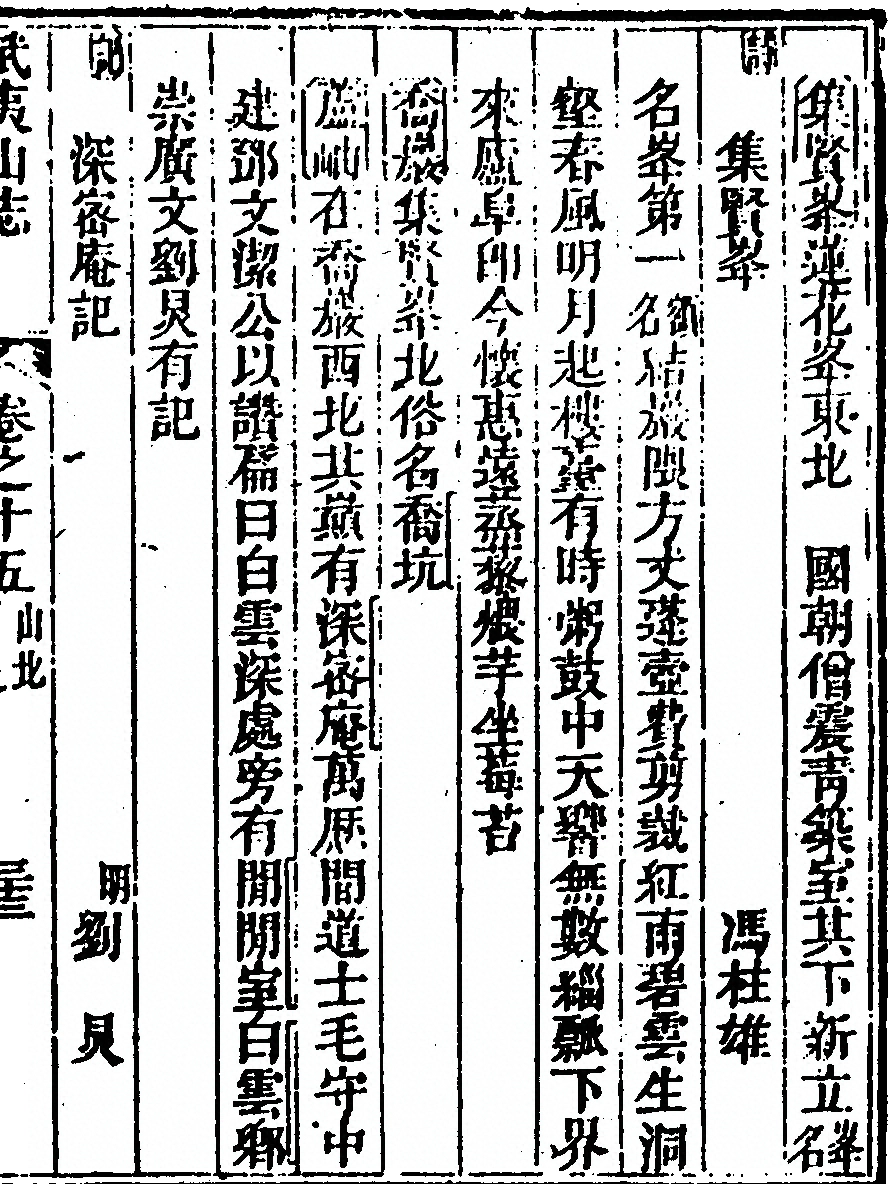 集賢峯蓮花峯東北　國朝僧震青築室其下新立峯名
詩
集賢峯　馮柱雄
名峯第一新名結巖隈方丈蓬壺費剪裁紅雨碧雲生洞
壑春風明月起樓臺有時粥鼓中天響無數糧瓢下界
來廬阜即今懷惠遠蒸藜煨芋坐莓苔
喬巖集賢峯北俗名喬坑
蘆岫在喬巖西北其巔有深密庵萬厯間道士毛守中
建鄧文潔公以讚扁曰白雲深處旁有閒閒室白雲鄉
崇廣文劉炅有記
記
深密庵記　明劉炅
武夷山志　卷之十五　山北